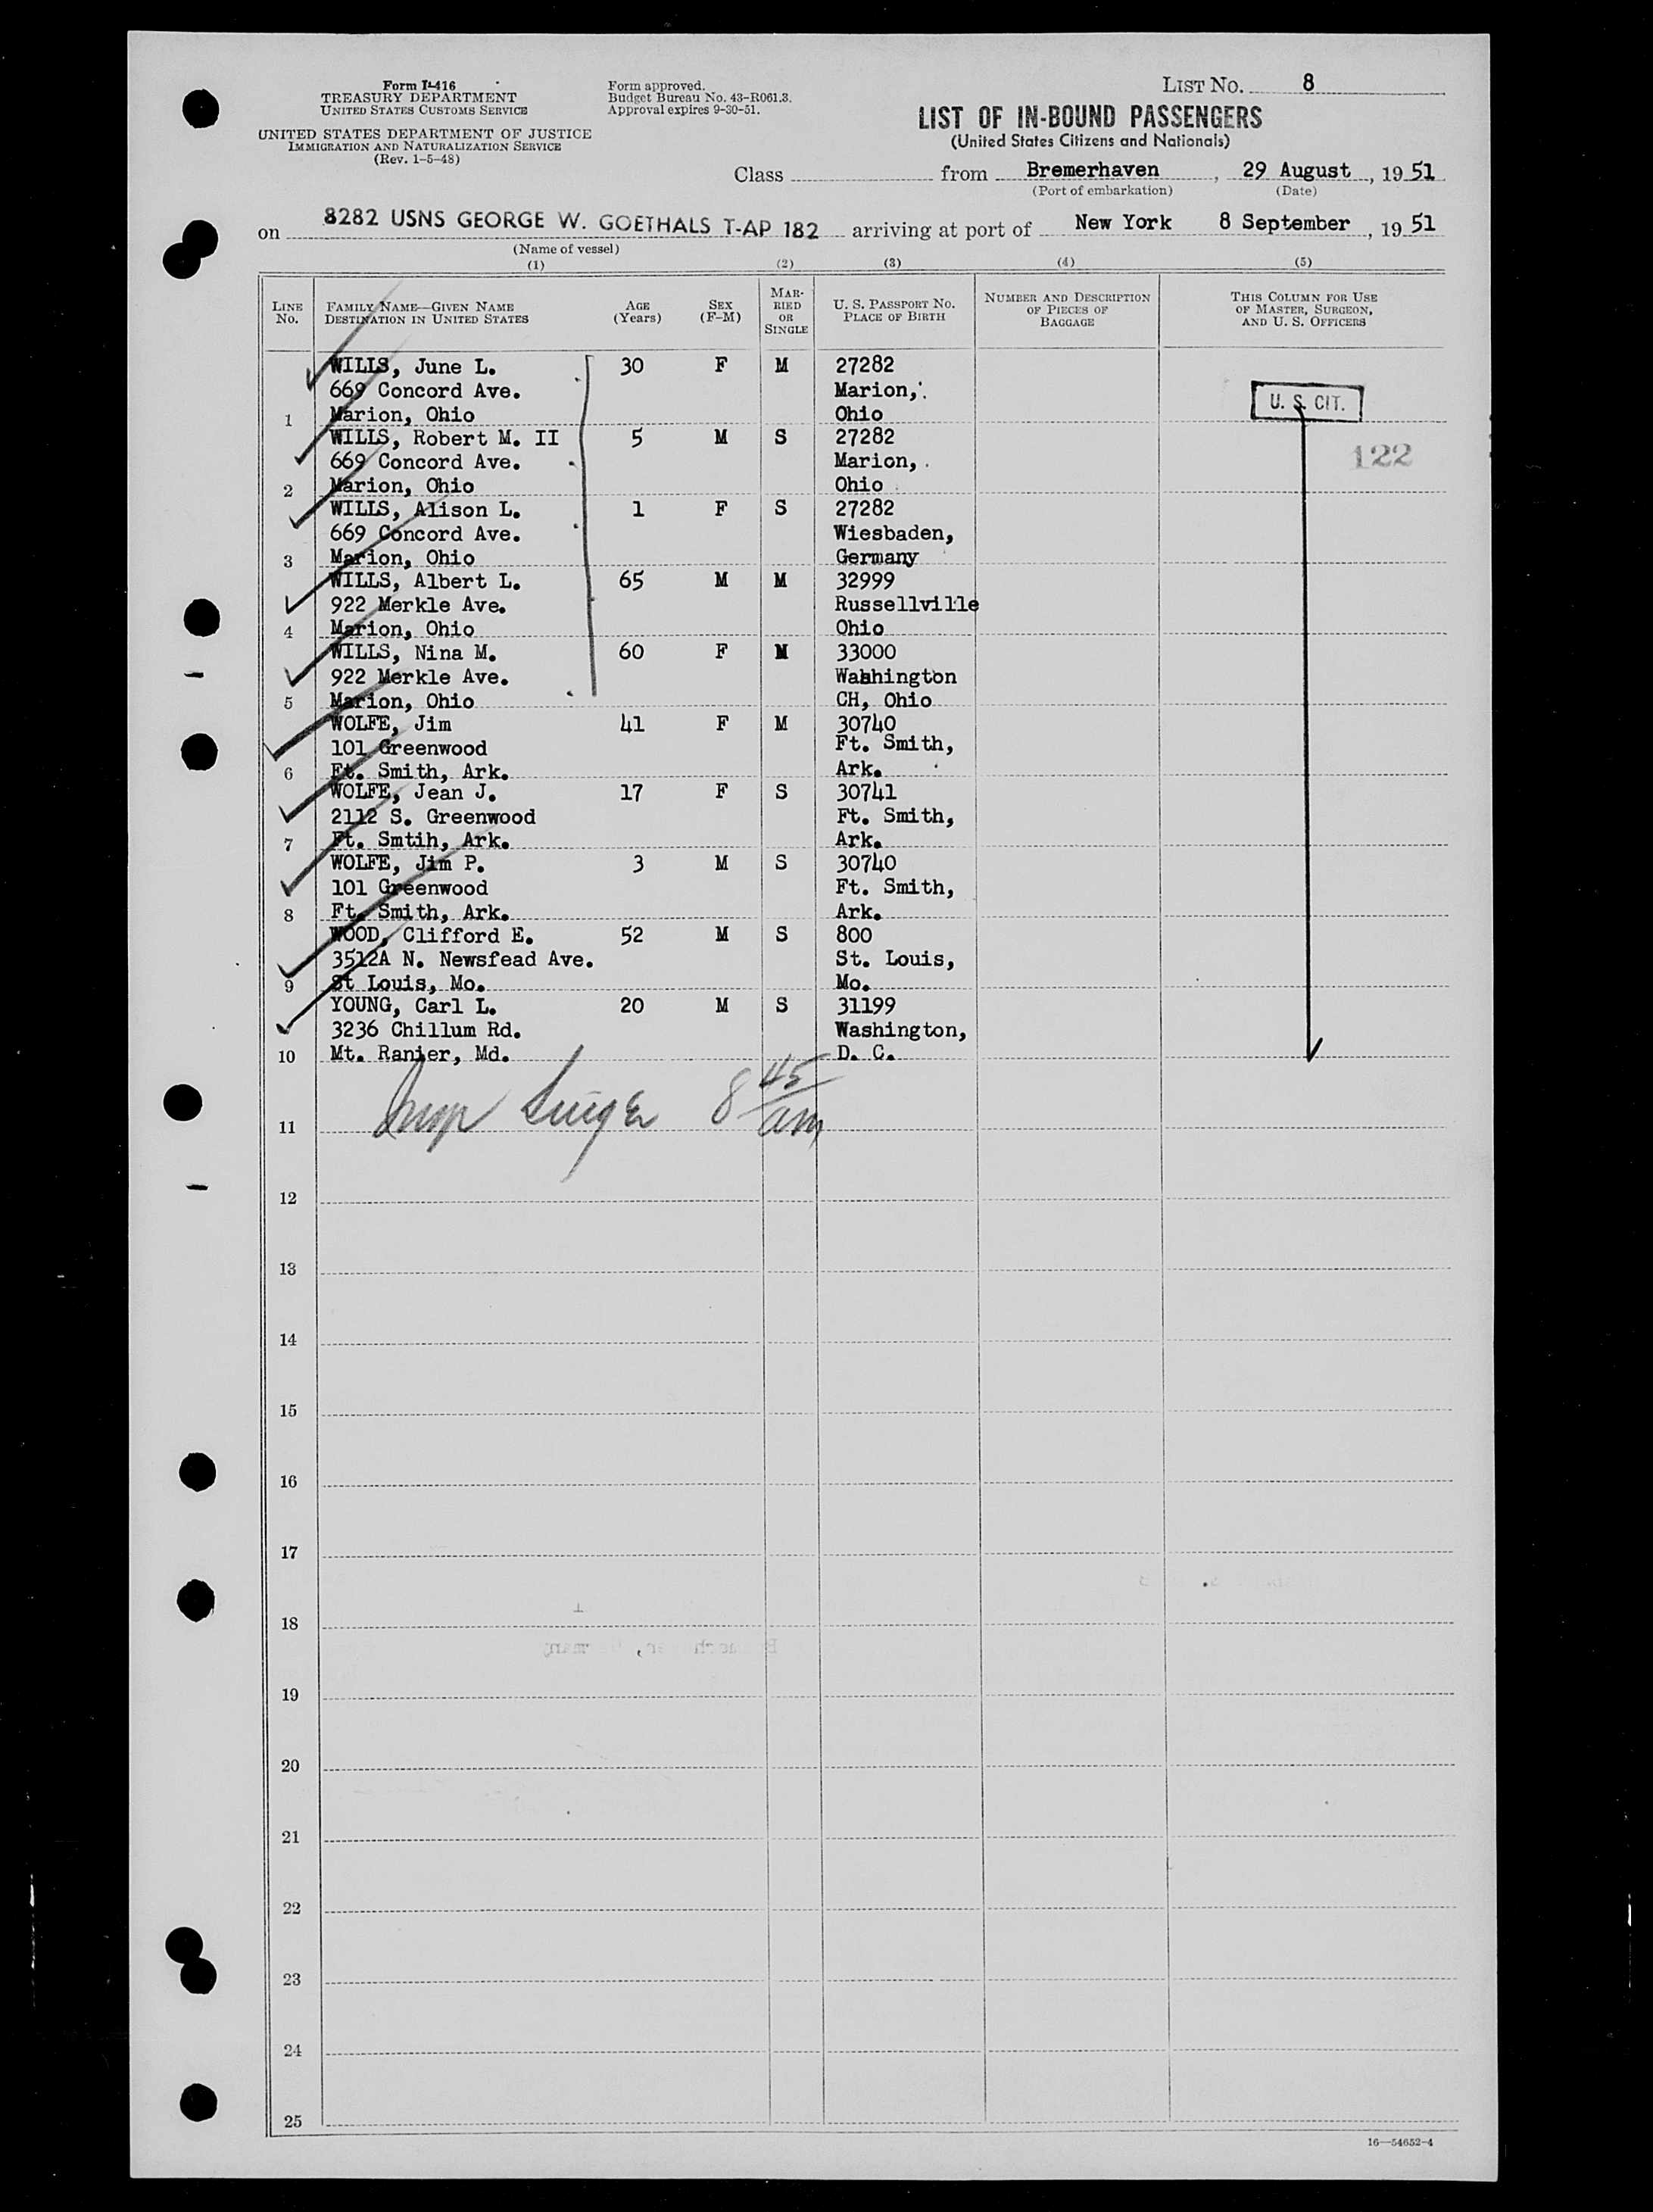 Form I-416
TREASURY DEPARTMENT
UNITED STATES CUSTOMS SERVICE
UNITED STATES DEPARTMENT OF JUSTICE
IMMIGRATION AND NATURALIZATION SERVICE
(Rev. 1-5-48)
Form approved.
Budget Bureau No. 43-R061.3.
Approval expires 9-30-51.
LIST NO. 8
LIST OF IN-BOUND PASSENGERS
(United States Citizens and Nationals)
Class from Bremerhaven, 29 August, 1951
(Port of embarkation) (Date)
on 8282 USNS GEORGE W. GOETHALS T-AP 182 arriving at port of New York 8 September, 1951
(Name of vessel)
(1) (2) (3) (4) (5)
LINE No.
FAMILY NAME—GIVEN NAME
DESTINATION IN UNITED STATES
AGE (Years)
SEX (F-M)
MARRIED OR SINGLE
U. S. PASSPORT No.
PLACE OF BIRTH
NUMBER AND DESCRIPTION OF PIECES OF BAGGAGE
THIS COLUMN FOR USE OF MASTER, SURGEON, AND U. S. OFFICERS
WILLS, June L. 30 F M 27282
669 Concord Ave. Marion,
1 Marion, Ohio Ohio
U. S. CIT.
WILLS, Robert M. II 5 M S 27282
669 Concord Ave. Marion,
122
2 Marion, Ohio Ohio
WILLS, Alison L. 1 F S 27282
669 Concord Ave. Wiesbaden,
3 Marion, Ohio Germany
WILLS, Albert L. 65 M M 32999
922 Merkle Ave. Russellville
4 Marion, Ohio Ohio
WILLS, Nina M. 60 F M 33000
922 Merkle Ave. Washington
5 Marion, Ohio CH, Ohio
WOLFE, Jim 41 F M 30740
101 Greenwood Ft. Smith,
6 Ft. Smith, Ark. Ark.
WOLFE, Jean J. 17 F S 30741
2112 S. Greenwood Ft. Smith,
7 Ft. Smtih, Ark. Ark.
WOLFE, Jim P. 3 M S 30740
101 Greenwood Ft. Smith,
8 Ft. Smith, Ark. Ark.
WOOD, Clifford E. 52 M S 800
3512A N. Newsfead Ave. St. Louis,
9 St Louis, Mo. Mo.
YOUNG, Carl L. 20 M S 31199
3236 Chillum Rd. Washington,
10 Mt. Ranier, Md. D. C.
Insp 8 45 am
11
12
13
14
15
16
17
18
19
20
21
22
23
24
25
16—54652-4